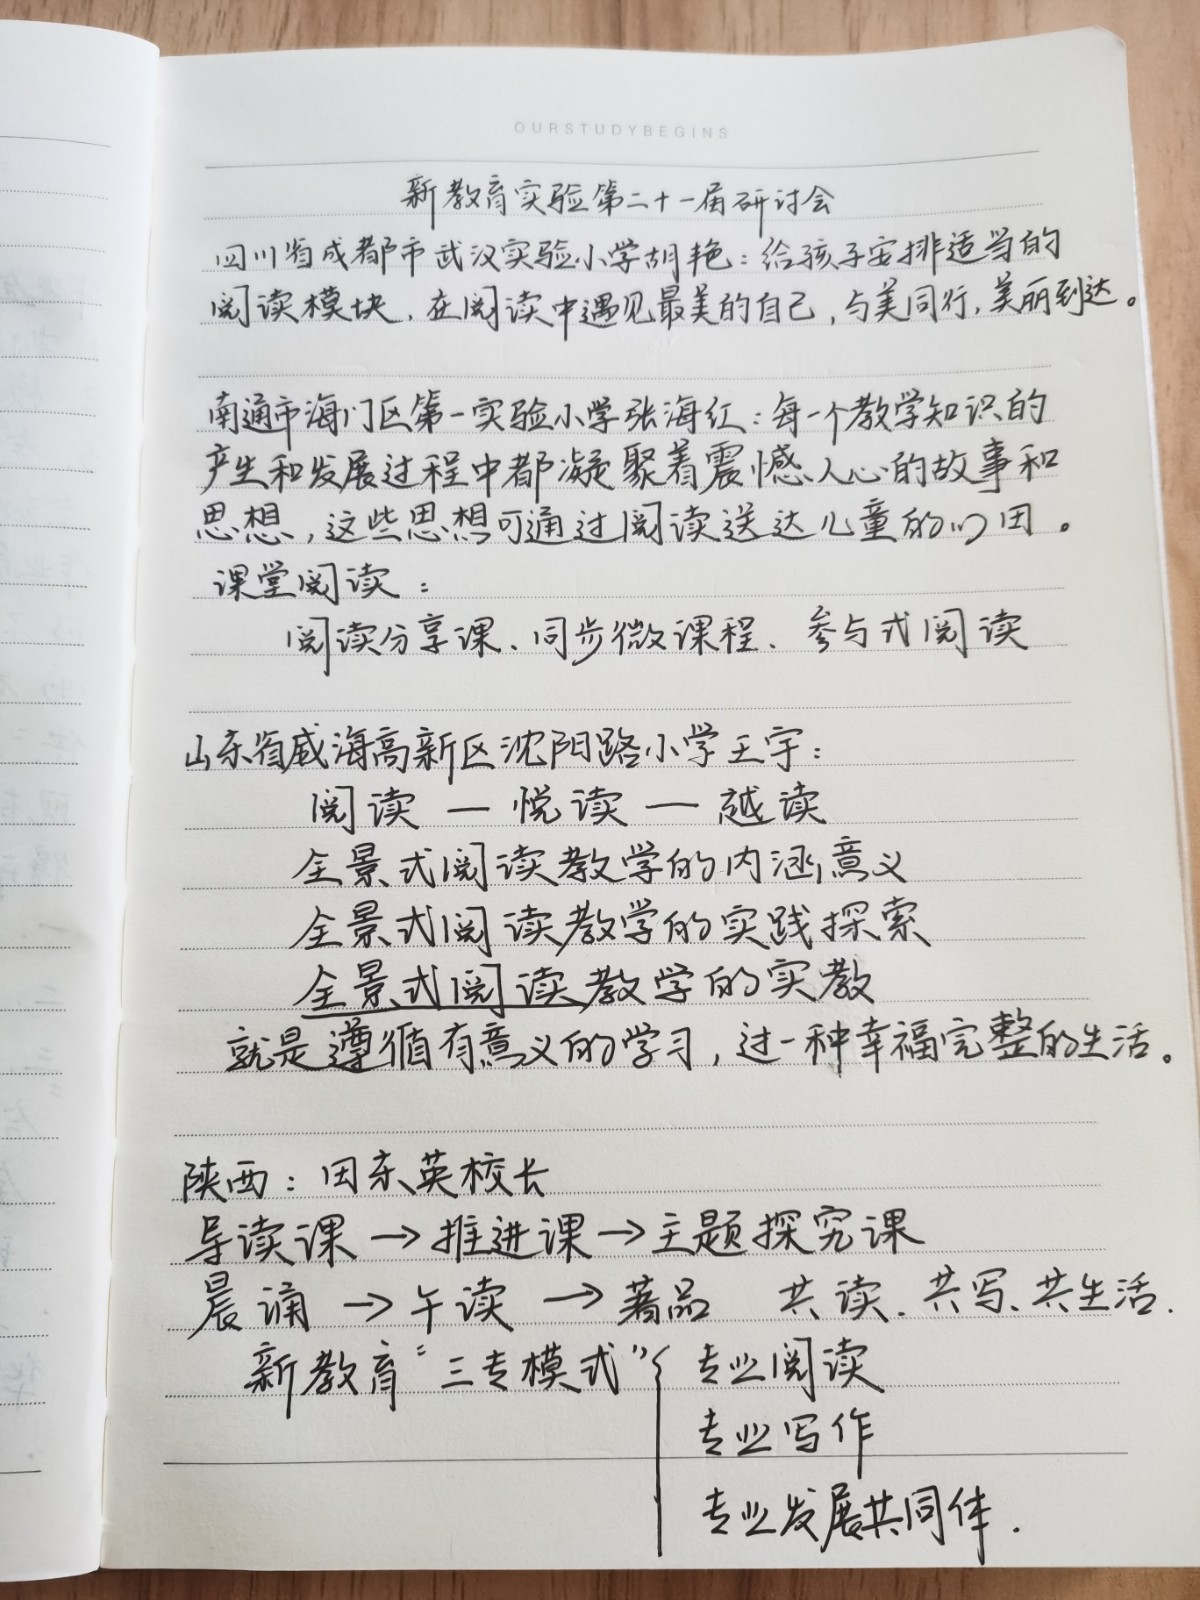 OURSTUDYBEGINS
新教育实验第二十一届研讨会
四川省成都市武汉实验小学胡艳：给孩子安排适当的
阅读模块，在阅读中遇见最美的自己，与美同行，美丽到达。
南通市海门区第一实验小学张海红：每一个教学知识的
产生和发展过程中都凝聚着震憾人心的故事和
思想，这些思想可通过阅读送达儿童的心田。
课堂阅读：
阅读分享课、同步微课程、参与式阅读
山东省威海高新区沈阳路小学王宇：
阅读 — 悦读 — 越读
全景式阅读教学的内涵意义
全景式阅读教学的实践探索
全景式阅读教学的实教
就是遵循有意义的学习，过一种幸福完整的生活。
陕西：田东英校长
导读课→推进课→主题探究课
晨诵→午读→著品 共读、共写、共生活.
新教育“三专模式”{专业阅读
专业写作
专业发展共同体.